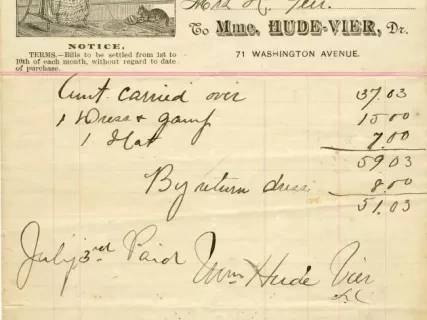 Mrs
To Mme. HUDE-VIER, Dr.
71 WASHINGTON AVENUE.
NOTICE.
TERMS.—Bills to be settled from 1st to
10th of each month, without regard to date
of purchase.
Amt carried over 37.03
1 Dress & gamp 15.00
1 Hat 7.00
59.03
By return dress 8.00
51.03
July 3rd Paid Mme Hude Vier